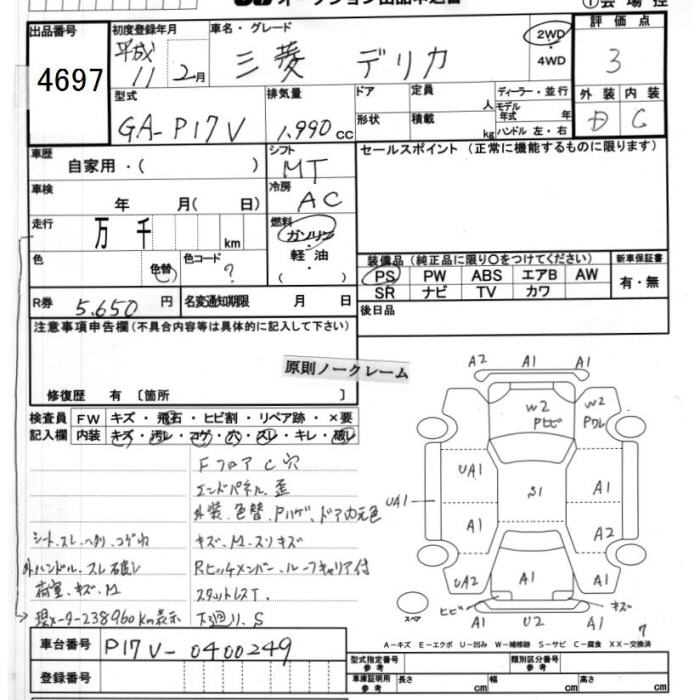 オークション出品申込書
①会場控
出品番号
4697
初度登録年月
平成11 2月
車名・グレード
三菱 デリカ
2WD
・
4WD
評価点
3
型式
GA-P17V
排気量
1,990 cc
ドア
形状
定員
人
積載
kg
ディーラー・並行
モデル年式 年
ハンドル 左・右
外装 内装
D C
車歴
自家用・( )
シフト
MT
セールスポイント (正常に機能するものに限ります)
車検
年 月( 日)
冷房
AC
走行
万 千 km
燃料
ガソリン
・
軽油
・
( )
色
色替
色コード
?
装備品 (純正品に限り○をつけてください)
新車保証書
PS PW ABS エアB AW
有・無
SR ナビ TV カワ
R券 5,650 円
名変通知期限 月 日
後日品
注意事項申告欄 (不具合内容等は具体的に記入して下さい)
原則ノークレーム
修復歴 有 [箇所 ]
検査員 FW キズ・飛石・ヒビ割・リペア跡・×要
記入欄 内装 キズ・汚レ・コゲ・穴・スレ・キレ・破レ
Fフロア C 穴
エンドパネル 歪
外装、色替、Pハゲ、ドア内元色
シート、スレ、ヘタリ、コゲ穴
キズ、M、スリキズ
外ハンドル、スレ破レ
Rヒッチメンバー、ルーフキャリア付
荷室、キズ、M
スタットレスT、
現メーター238960km表示
下回リ、S
車台番号 P17V-0400249
登録番号
A2 A1 A1
W2
Pヒビ
W2
Pワレ
UA1
S1
A1
UA1
A1
A2
UA2
A1
A1
スペア
ヒビ
キズ
A1 U2 A1
7
A－キズ E－エクボ U－凹み W－補修跡 S－サビ C－腐食 XX－交換済
型式指定番号
参考
類別区分番号
参考
車庫証明用
参考
長さ cm
幅 cm
高さ cm